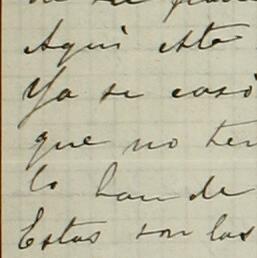 Aqui este
Ya se casó
que no ten
lo han de
Estas son las